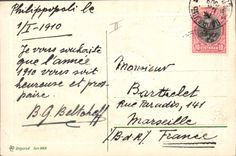 Philippopoli le
1/I-1910
Je vous souhaite
que l'année
1910 vous soit
heureuse et pros-
paire
B.G. Beltcheff
II
Monsieur
Barthelet
Rue Paradis, 141
Marseille
(B.d.R) France
10 10
Serie